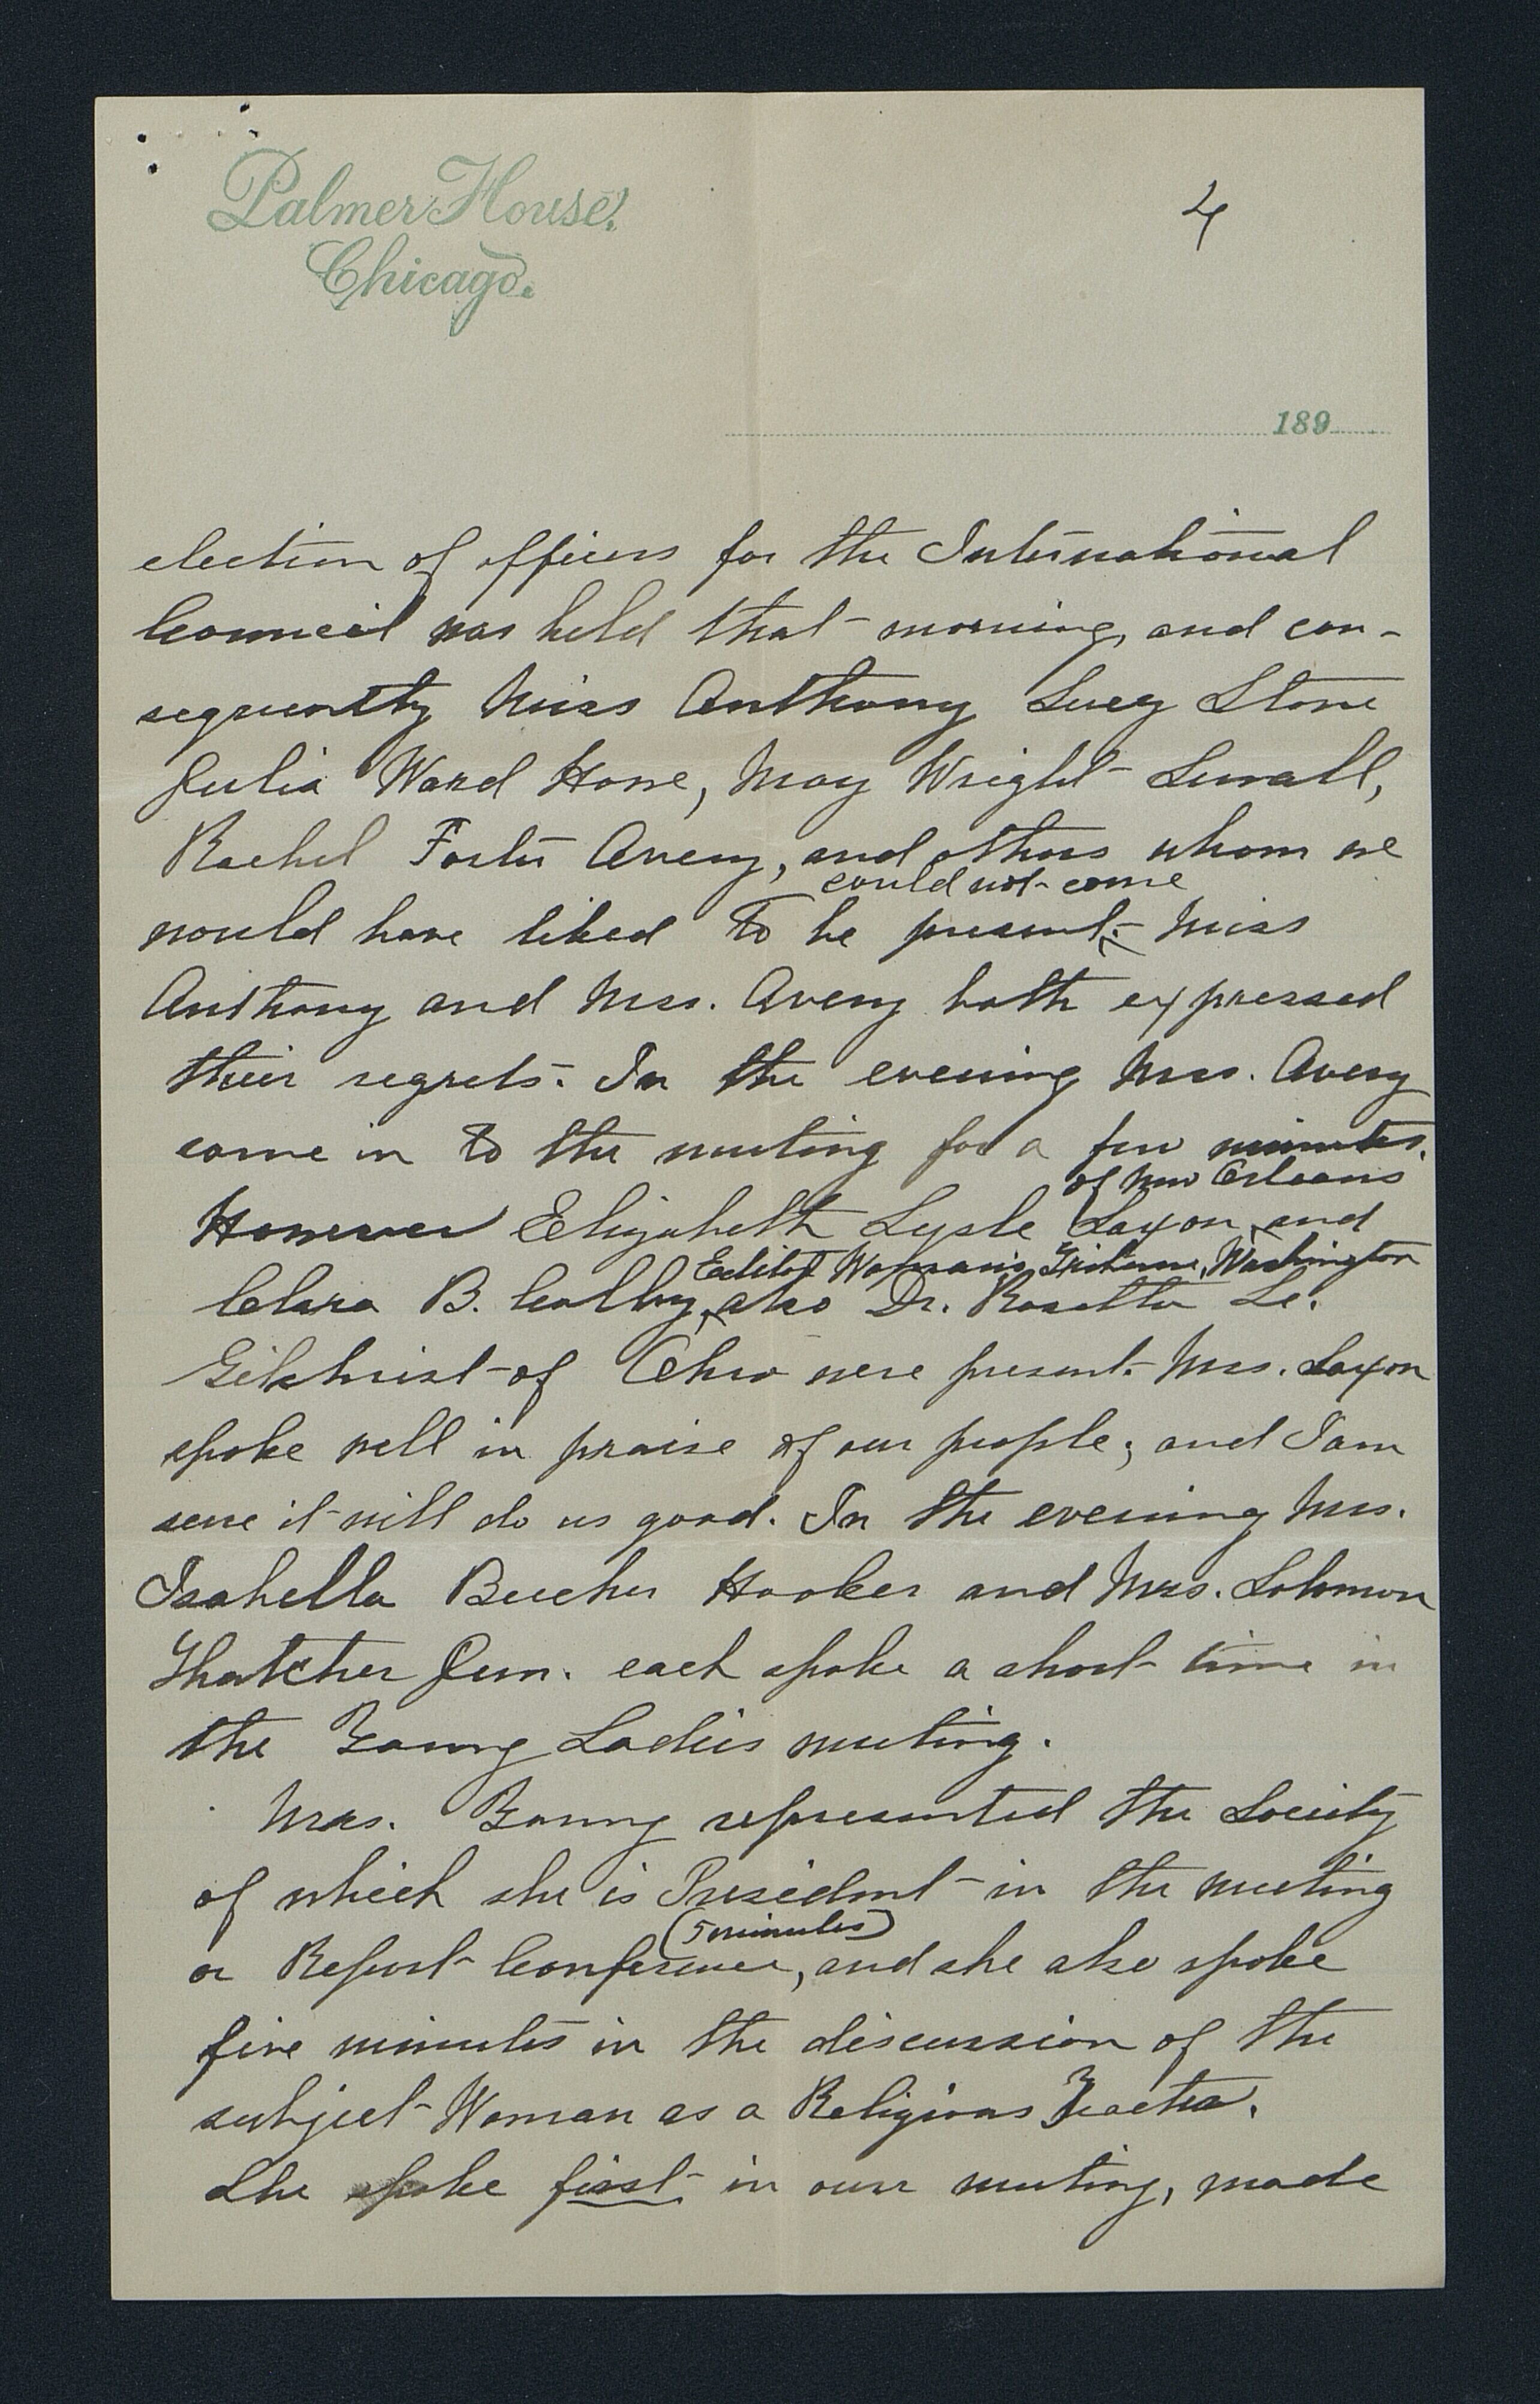 Palmer House,
Chicago.
4
189
election of officers for the International
Council was held that morning, and con-
sequently Miss Anthony Lucy Stone
Julia Ward Howe, May Wright Sewall,
Rachel Foster Avery, and others whom we
could not come
would have liked to be present. Miss
Anthony and Mrs. Avery both expressed
their regrets. In the evening Mrs. Avery
came in to the meeting for a few minutes.
of New Orleans
However Elizabeth Lysle Saxon, and
Editor Woman's Tribune, Washington
Clara B. Colby, also Dr. Rosetta L.
Gilchrist of Ohio were present. Mrs. Saxon
spoke well in praise of our people; and I am
sure it will do us good. In the evening Mrs.
Isabella Beecher Hooker and Mrs. Solomon
Thatcher Jun. each spoke a short time in
the Young Ladies meeting.
Mrs. Young represented the Society
of which she is President in the meeting
(5 minutes)
or Report Conference, and she also spoke
five minutes in the discussion of the
subject Woman as a Religious Teacher.
She spoke first in our meeting, made